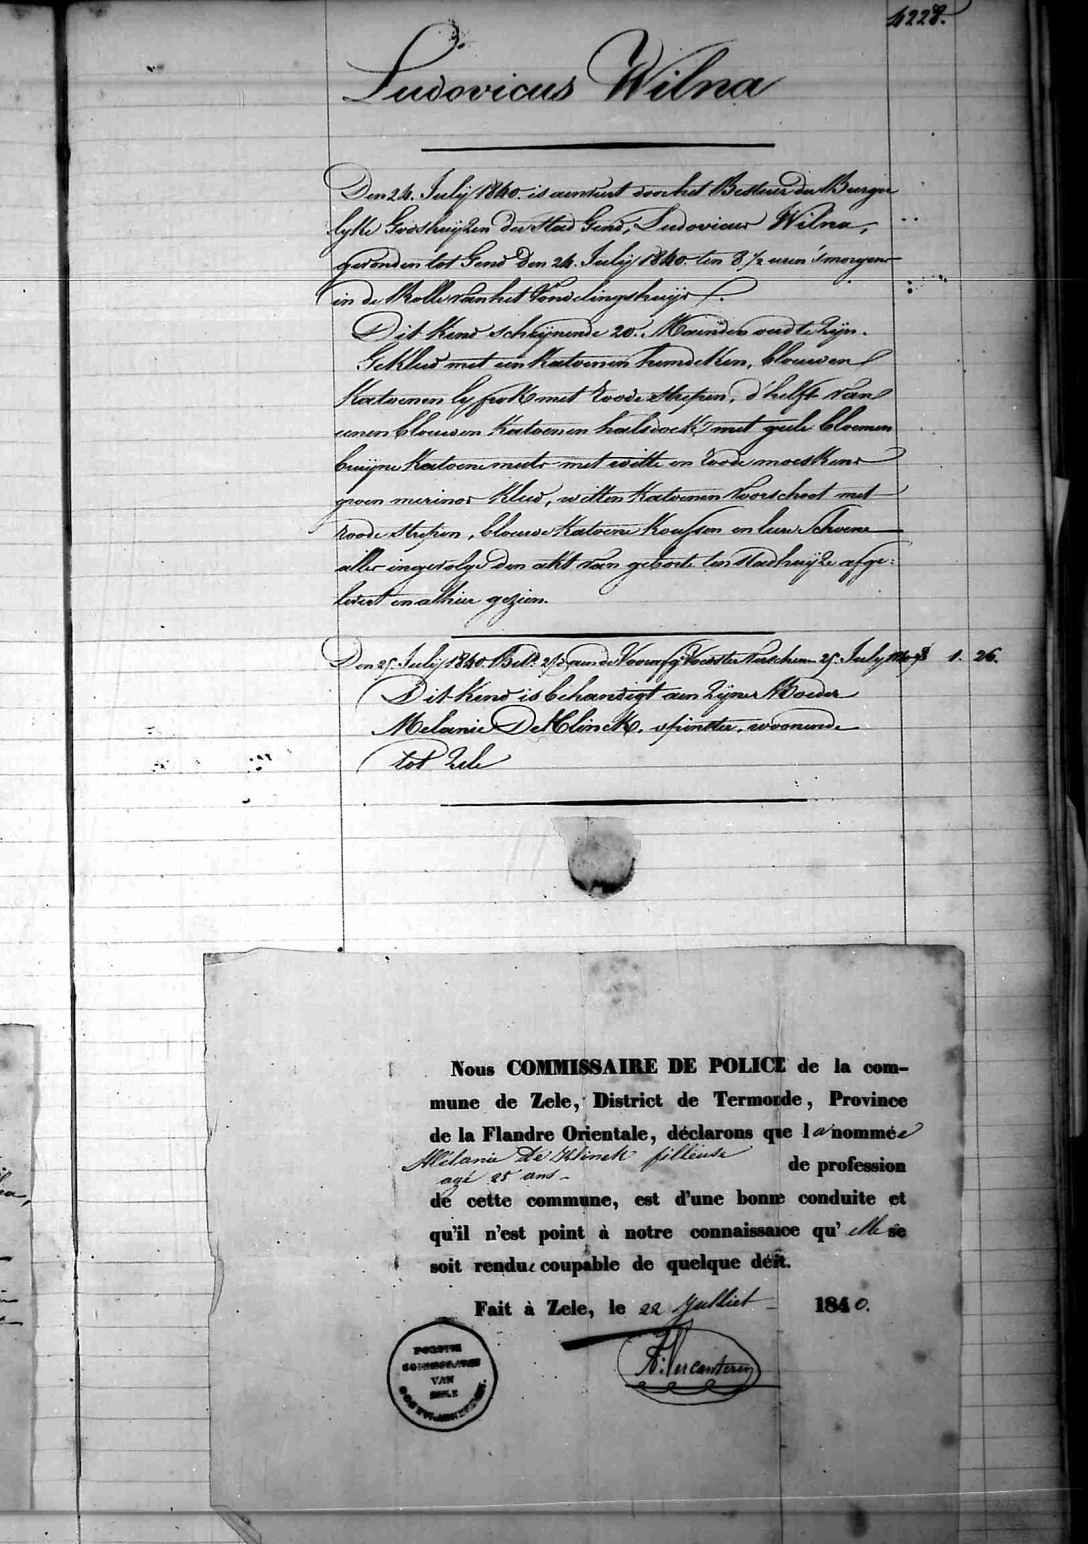 4228.
Ludovicus Wilna
Den 24. July 1840. is aenveert door het Bestier der Burger
lyke Godshuijzen der Stad Gend, Ludovicus Wilna,
gevonden tot Gend den 24. July 1840. ten 8 1/2 uren s'morgens
in de Rolle van het Vondelingshuijs.
Dit Kind schijnende 20. Maenden oud te Zijn.
Gekleed met een Katoenen hemdeken, blouwen
Katoenen lyfrok met roode strepen, d'helft van
eenen blouwen Katoenen halsdoek met geele bloemen
bruijne Katoene muts met witte en roode moeskens
groen merinos Kleed, witten Katoenen Voorschoot met
roode strepen, blouwe Katoene Koussen en leere Schoene
alles ingevolge den akt van geboorte ten Stadhuijze afge-
levert en alhier gezien.
Den 25. July 1840. aen de 25. July 1. 26.
Dit Kind is behandigt aen Zijne Moeder
Melanie De Klinck, spinster, woonende
tot Zele
Nous COMMISSAIRE DE POLICE de la com-
mune de Zele, District de Termonde, Province
de la Flandre Orientale, déclarons que la nommée
Mélanie De Klinck fileuse de profession
agé 25 ans
de cette commune, est d'une bonne conduite et
qu'il n'est point à notre connaissance qu'elle se
soit rendue coupable de quelque délit.
Fait à Zele, le 22 Julliet 1840.
POLICIE
COMMISSARIS
VAN
ZELE